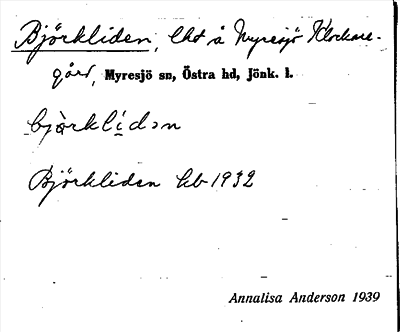 Björkliden, lht å Myresjö Klockare-
gård, Myresjö sn, Östra hd, Jönk. l.
bjö̀rklídən
Björkliden kb 1932
Annalisa Anderson 1939